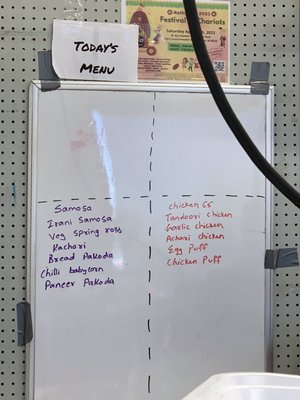 TODAY'S
MENU
Festival of Chariots
Samosa
Irani Samosa
Veg spring rolls
Kachori
Bread Pakoda
Chilli babycorn
Paneer Pakoda
Chicken 65
Tandoori chicken
Garlic chicken
Achari chicken
Egg Puff
Chicken Puff